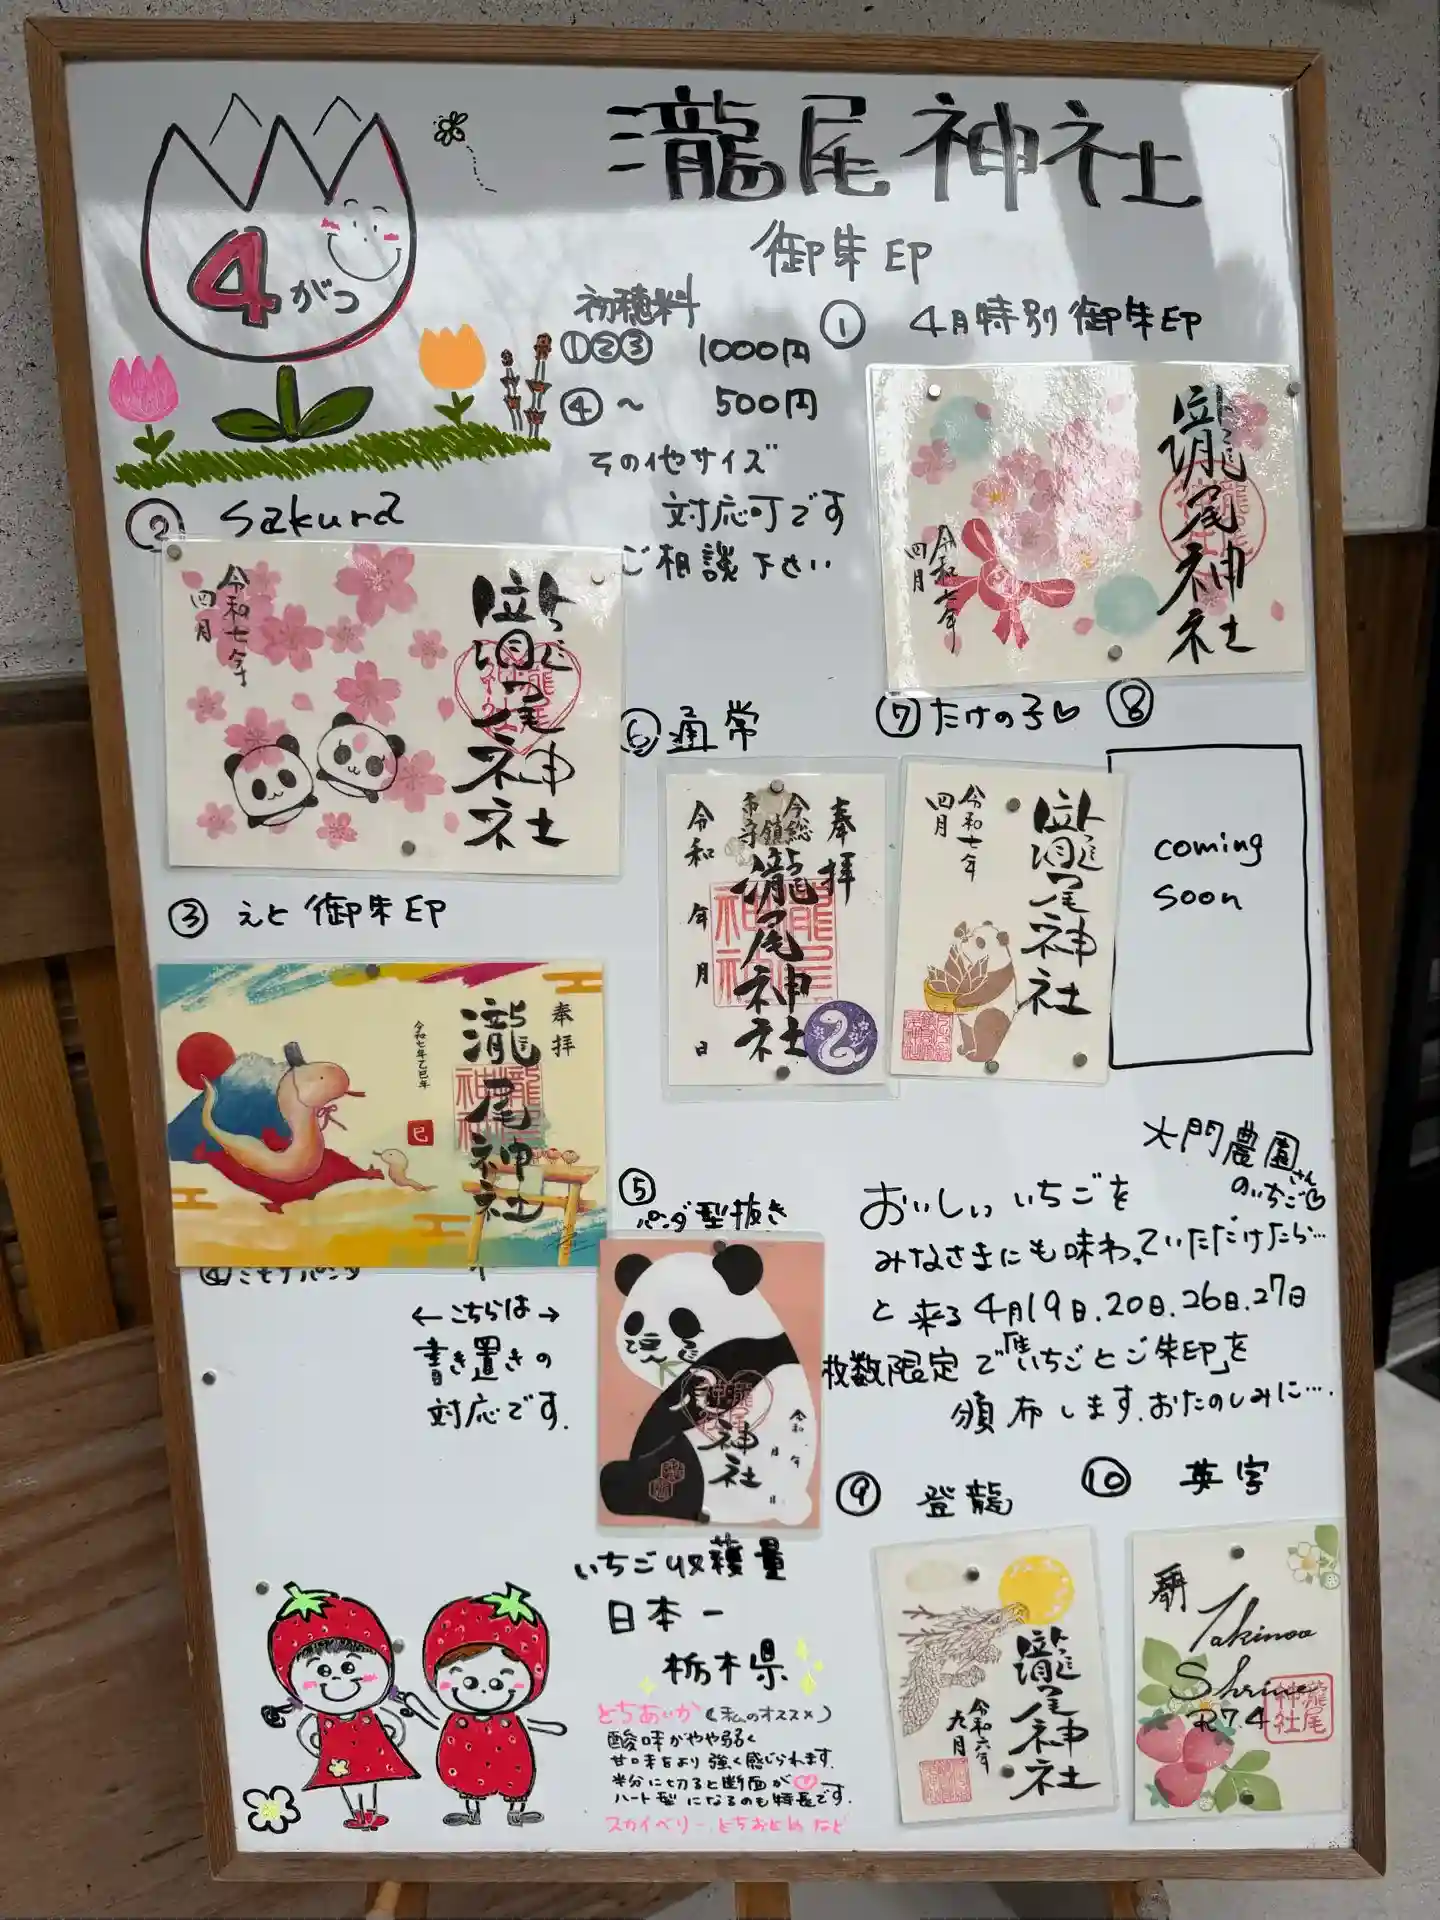 瀧尾神社
御朱印
4がつ
初穂料
①②③ 1000円
④～ 500円
その他サイズ
対応可です
ご相談下さい
① 4月特別御朱印
瀧尾神社
令和七年
四月
② Sakura
瀧尾神社
令和七年
四月
③ えと御朱印
奉拝
瀧尾神社
令和七年乙巳年
巳
⑥ 通常
奉拝
今市総鎮守
瀧尾神社
令和 年 月 日
⑦ たけの子♡
瀧尾神社
令和七年
四月
⑧
coming
soon
大門農園さん
のいちご♡
おいしいいちごを
みなさまにも味わっていただけたら…
と来る4月19日.20日.26日.27日
枚数限定で「苺いちごとご朱印」を
頒布します.おたのしみに….
←こちらは→
書き置きの
対応です.
⑤
パンダ型抜き
神社
令和 年 月 日
⑨ 登龍
瀧尾神社
令和六年
九月
⑩ 英字
Takinoo
Shrine
R7.4
瀧尾神社
いちご収穫量
日本一
栃木県
とちあいか(私のオススメ)
酸味がやや弱く
甘味をより強く感じられます.
半分に切ると断面が♡です.
ハート型になるのも特長です.
スカイベリー、とちおとめなど